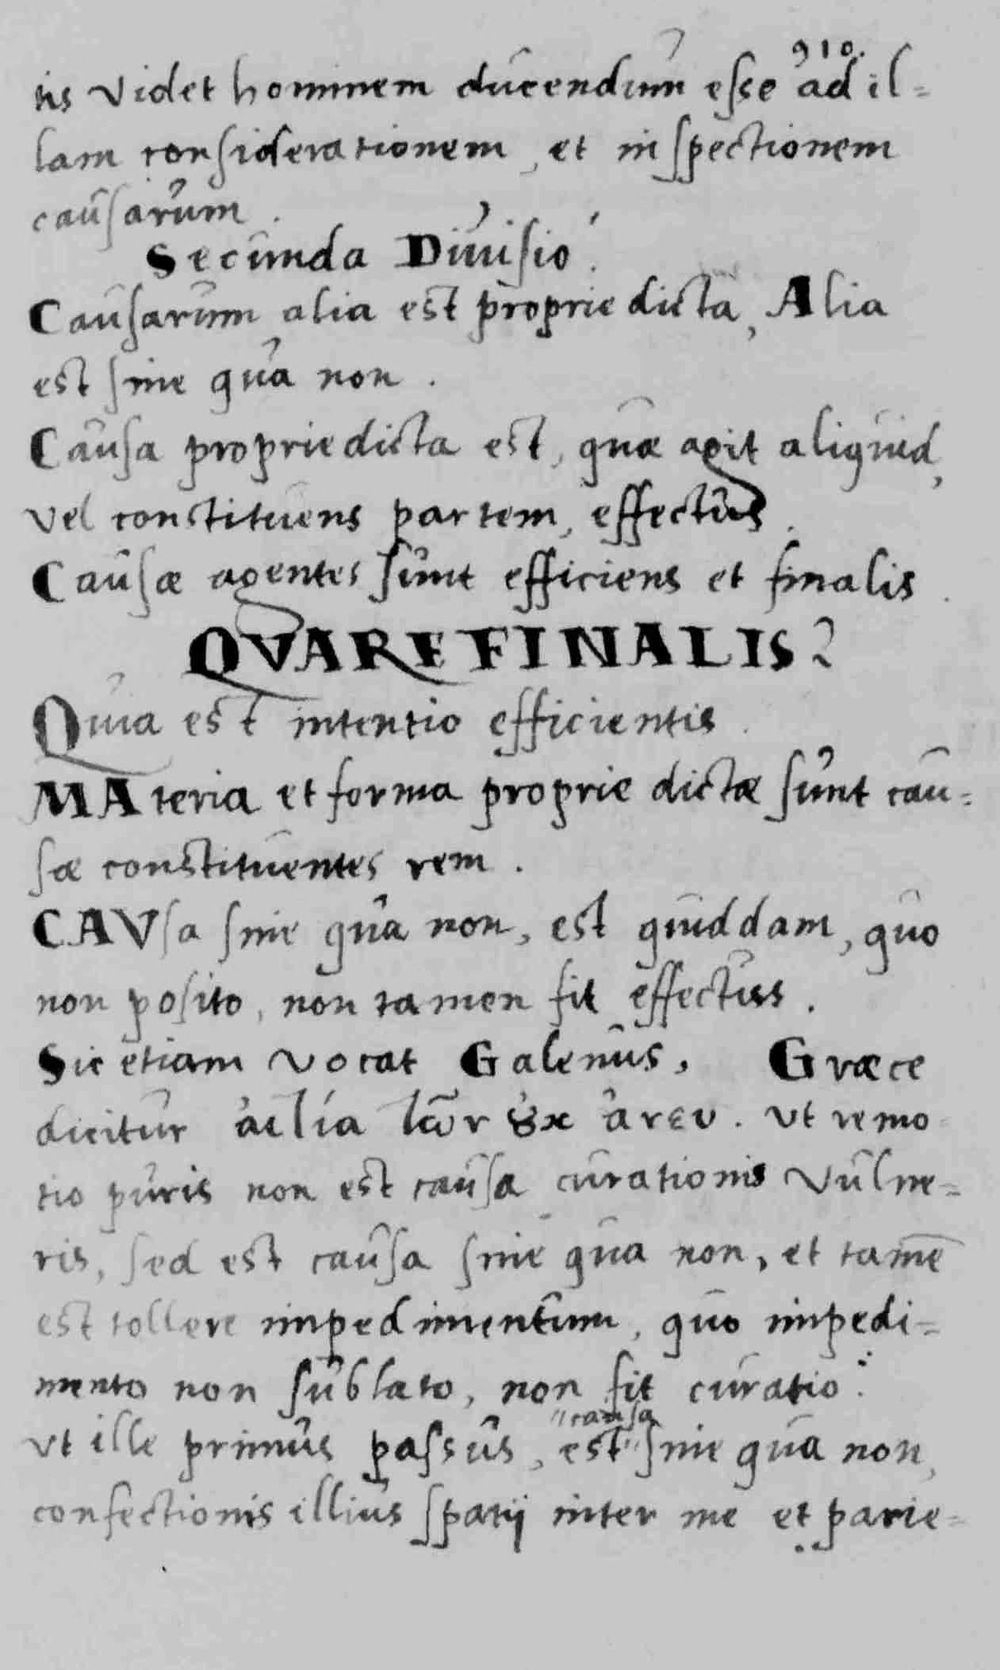 910.
tis videt hominem ducendum esse ad il=
lam considerationem, et inspectionem
causarum.
Secunda Diuisio.
Causarum alia est proprie dicta, Alia
est sine qua non.
Causa proprie dicta est, quæ agit aliquid,
vel constituens partem, effectus.
Causæ agentes sunt efficiens et finalis.
QVARE FINALIS?
Quia est intentio efficientis.
MAteria et forma proprie dictæ sunt cau=
sæ constituentes rem.
CAVsa sine qua non, est quiddam, quo
non posito, non tamen fit effectus.
Sic etiam vocat Galenus. Græce
dicitur. Vt remo
tio puris non est causa curationis vulne=
ris, sed est causa sine qua non, et tamē
est tollere impedimentum, quo impedi=
mento non sublato, non fit curatio:
causa
vt ille primus passus, est sine qua non,
confectionis illius spatij inter me et parie=